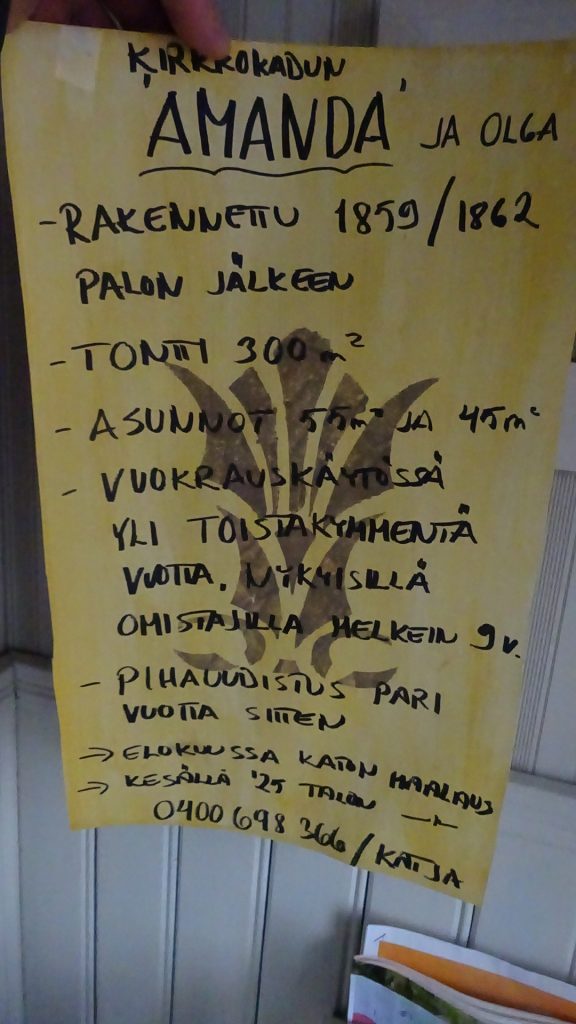 KIRKKOKADUN
'AMANDA' JA OLGA
- RAKENNETTU 1859/1862
PALON JÄLKEEN
- TONTTI 300 m²
- ASUNNOT 55m² JA 45m²
- VUOKRAUSKÄYTÖSSÄ
YLI TOISTAKYMMENTÄ
VUOTTA. NYKYISILLÄ
OMISTAJILLA MELKEIN 9 v.
- PIHAUUDISTUS PARI
VUOTTA SITTEN
→ ELOKUUSSA KATON MAALAUS
→ KESÄLLÄ '25 TALON —"—
0400 698 366 / KATJA